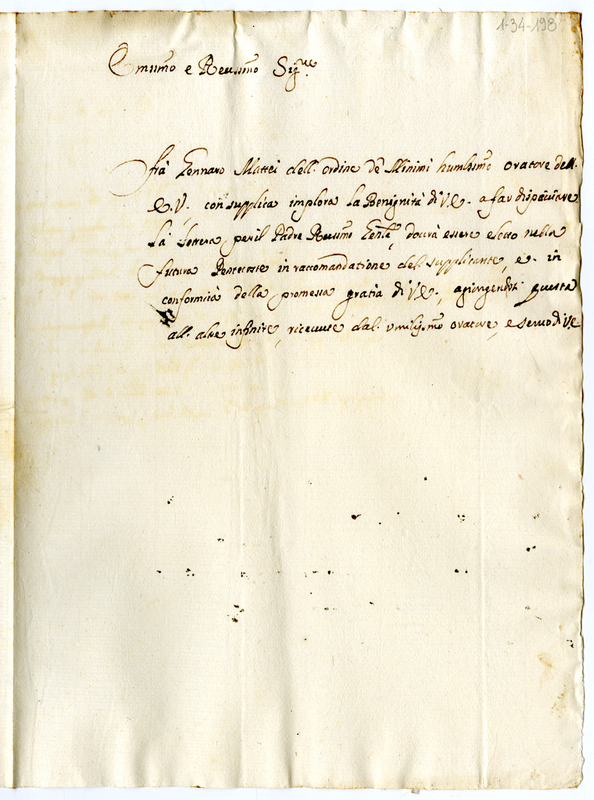 1-34-198
Emimo e Reuimo Sigre
frà Gennaro Mattei dell' ordine de Minimi humilimo oratore dell'
E.V. con supplica implora la Benignità di V.E. a far dispacciare
la lettera, per il Padre Reuimo Genle, dourà essere eletto nella
futura Pentecoste in raccomandatione del supplicante, e in
conformità della promessa gratia di V.E., agiungendosi questa
all' altre infinite, riceuute dal' umilissmo oratore, e seruo di VE